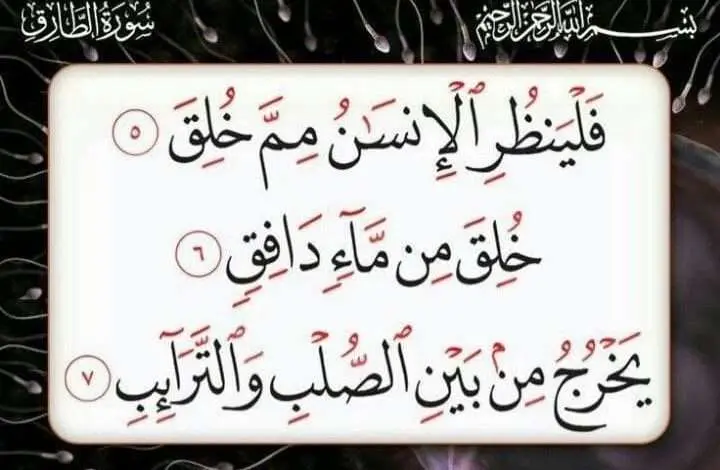 بِسْمِ اللَّهِ الرَّحْمَٰنِ الرَّحِيمِ
سُورَةُ الطَّارِقِ
فَلْيَنظُرِ ٱلْإِنسَٰنُ مِمَّ خُلِقَ ٥
خُلِقَ مِن مَّآءٍ دَافِقٍ ٦
يَخْرُجُ مِنۢ بَيْنِ ٱلصُّلْبِ وَٱلتَّرَآئِبِ ٧